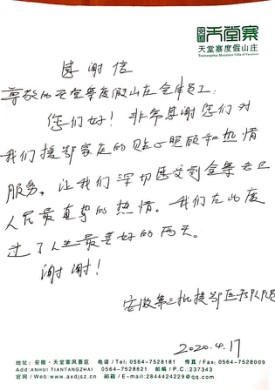 天堂寨
天堂寨度假山庄
感谢信
尊敬的天堂寨度假山庄全体员工:
您们好!非常感谢您们对
我们援鄂家庭的贴心照顾和热情
服务。让我们深切感受到金寨老区
人民最真挚的热情。我们在此度
过了人生最美好的两天。
谢谢!
安徽第三批援鄂医疗队队员
2020.4.17
地址:安徽·天堂寨风景区 电话/Tel: 0564-7528181 传真/Fax: 0564-7528089
Add:ANHUI TIANTANGZHAI 0564-7528821 邮编/P.C.237343
官网/Web:www.axdjsz.cn 邮箱/E-Mail:2844424229@qq.com